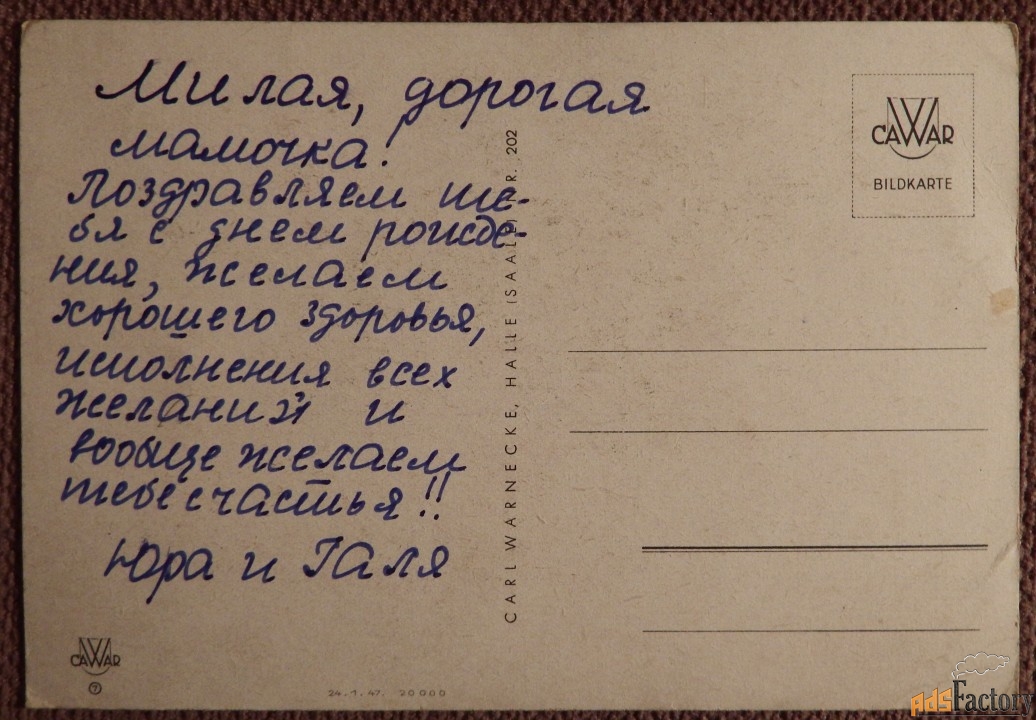 Милая, дорогая
мамочка!
Поздравляем те-
бя с днем рожде-
ния, желаем
хорошего здоровья,
исполнения всех
желаний и
вообще желаем
тебе счастья!!
Юра и Галя
CAWAR
7
24.1.47. 20000
CARL WARNECKE, HALLE (SAALE) NR. 202
CAWAR
BILDKARTE
AdsFactory